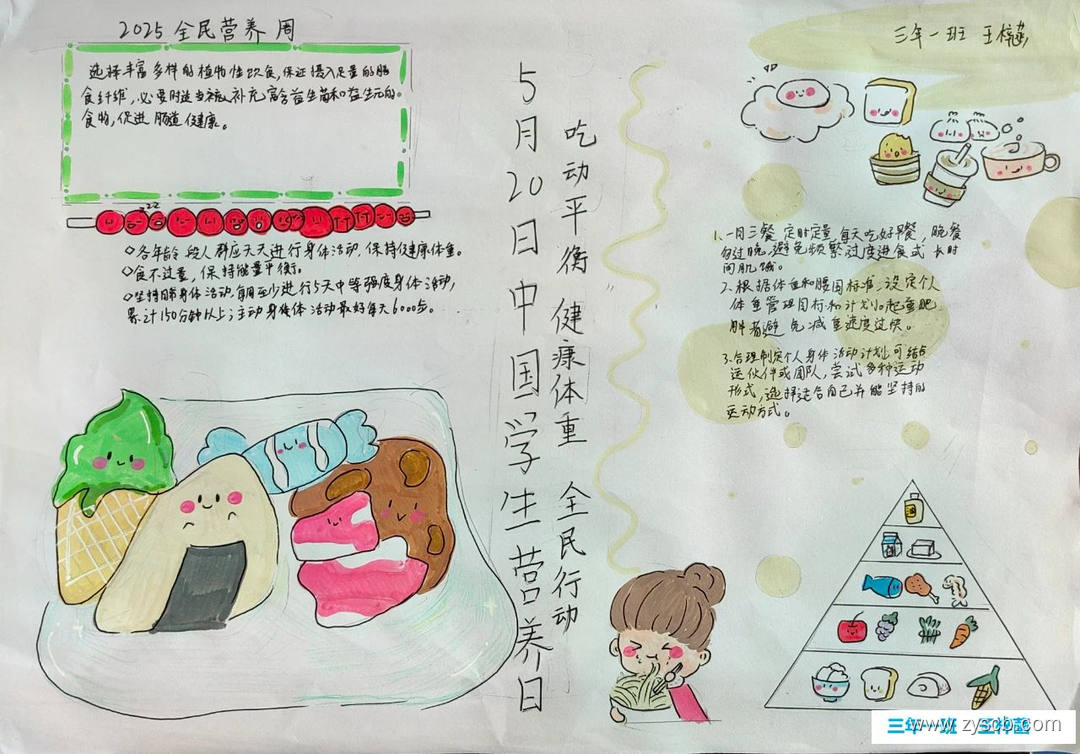 2025 全民营养周
选择丰富多样的植物性饮食,保证摄入足量的膳
食纤维,必要时适当补充富含益生菌和益生元的
食物,促进肠道健康。
zzz
◇各年龄段人群应天天进行身体活动,保持健康体重。
◇食不过量,保持能量平衡。
◇坚持日常身体活动,每周至少进行5天中等强度身体活动,
累计150分钟以上;主动身体活动最好每天6000步。
5月20日中国学生营养日
吃动平衡 健康体重 全民行动
三年一班 王梓
1.一日三餐 定时定量 每天吃好早餐,晚餐
勿过晚,避免频繁过度进食或长时
间饥饿。
2.根据体重和腰围标准,设定个
体重管理目标和计划。超重肥
胖者避免减重速度过快。
3.合理制定个人身体活动计划,可结
运伙伴或团队,尝试多种运动
形式,选择适合自己并能坚持的
运动方式。
三年一班 王梓
www.zyscb.com